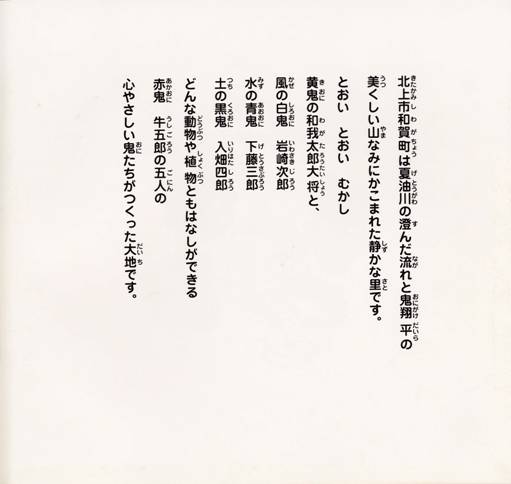 北上市和賀町は夏油川の澄んだ流れと鬼翔平の
美くしい山なみにかこまれた静かな里です。
とおい　とおい　むかし
黄鬼の和我太郎大将と、
風の白鬼　岩崎次郎
水の青鬼　下藤三郎
土の黒鬼　入畑四郎
どんな動物や植物ともはなしができる
赤鬼　牛五郎の五人の
心やさしい鬼たちがつくった大地です。